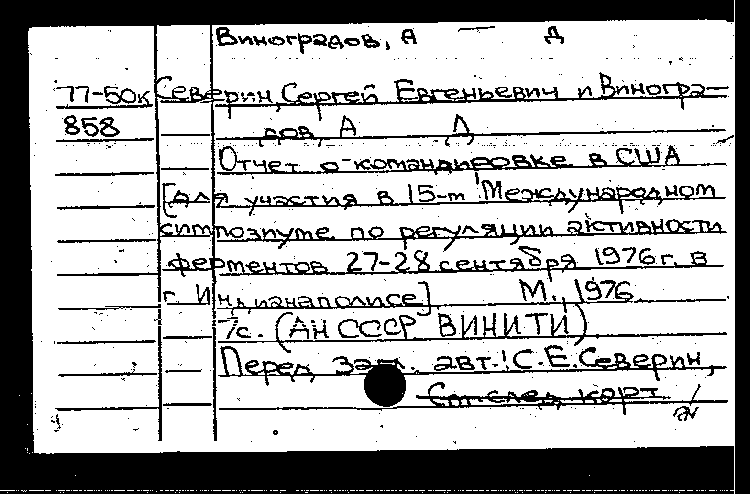 Виноградов, А — Д
77-50к Северин, Сергей Евгеньевич и Виногра-
858 дов, А Д
Отчет о командировке в США
[для участия в 15-м Международном
симпозиуме по регуляции активности
ферментов 27-28 сентября 1976 г. в
г. Индианаполисе] М., 1976
7с. (АН СССР ВИНИТИ)
Перед загл. авт.: С.Е.Северин,
См. след. карт.